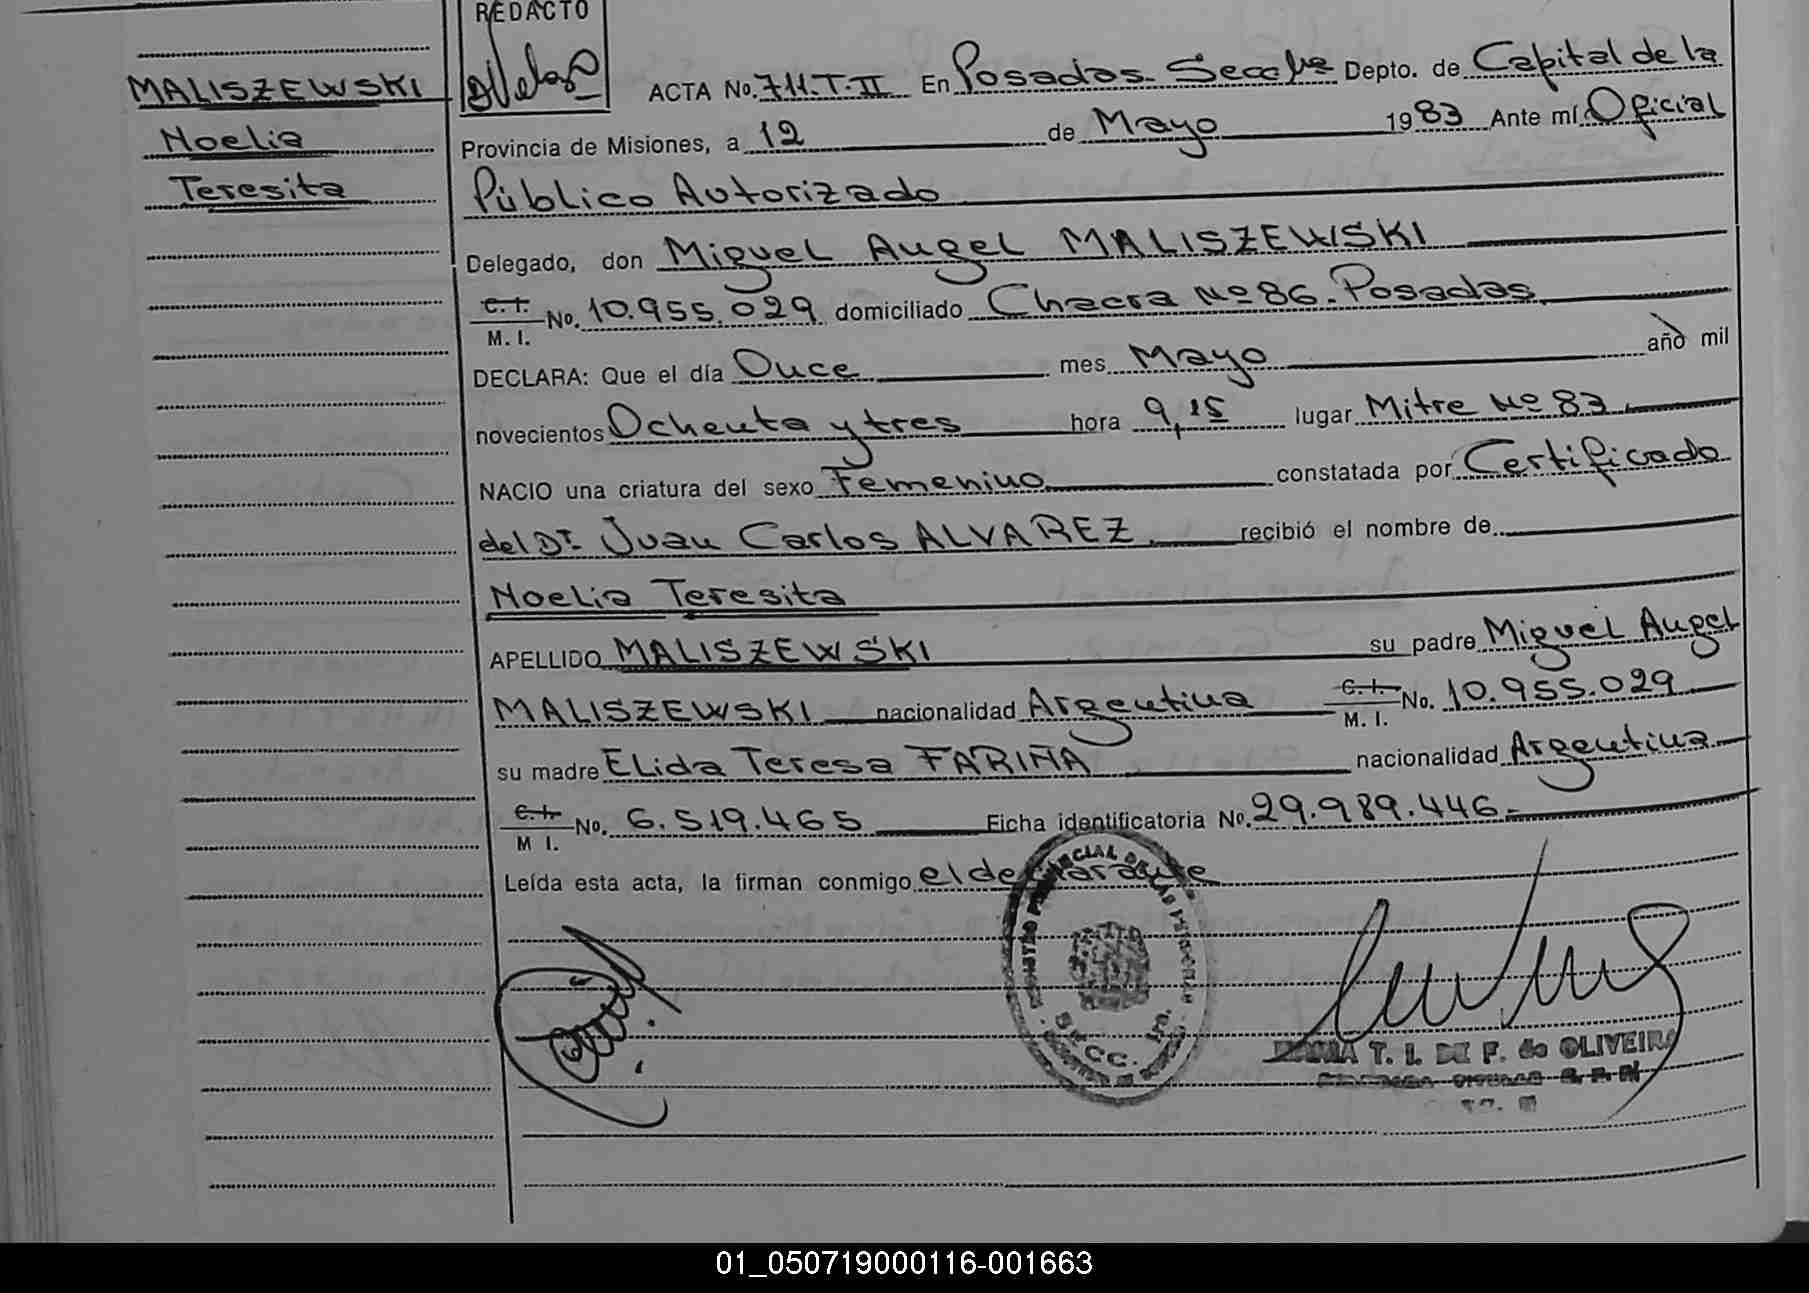 REDACTO
MALISZEWSKI
Noelia
Teresita
ACTA No. 711.T.II En Posadas Secc 1ra Depto. de Capital de la
Provincia de Misiones, a 12 de Mayo 1983 Ante mí Oficial
Público Autorizado
Delegado, don Miguel Angel MALISZEWSKI
C.I.
M. I. No. 10.955.029 domiciliado Chacra Nº 86. Posadas
DECLARA: Que el día Once mes Mayo año mil
novecientos Ochenta y tres hora 9,15 lugar Mitre Nº 83
NACIO una criatura del sexo Femenino constatada por Certificado
del Dr. Juan Carlos ALVAREZ recibió el nombre de
Noelia Teresita
APELLIDO MALISZEWSKI su padre Miguel Angel
MALISZEWSKI nacionalidad Argentina C.I. M. I. No. 10.955.029
su madre Elida Teresa FARIÑA nacionalidad Argentina
C.I.
M I. No. 6.519.465 Ficha identificatoria No. 29.989.446-
Leída esta acta, la firman conmigo el declarante
REGISTRO PROVINCIAL DE LAS PERSONAS
S. CC. 1ra.
T. I. DE F. de OLIVEIRA
01_050719000116-001663